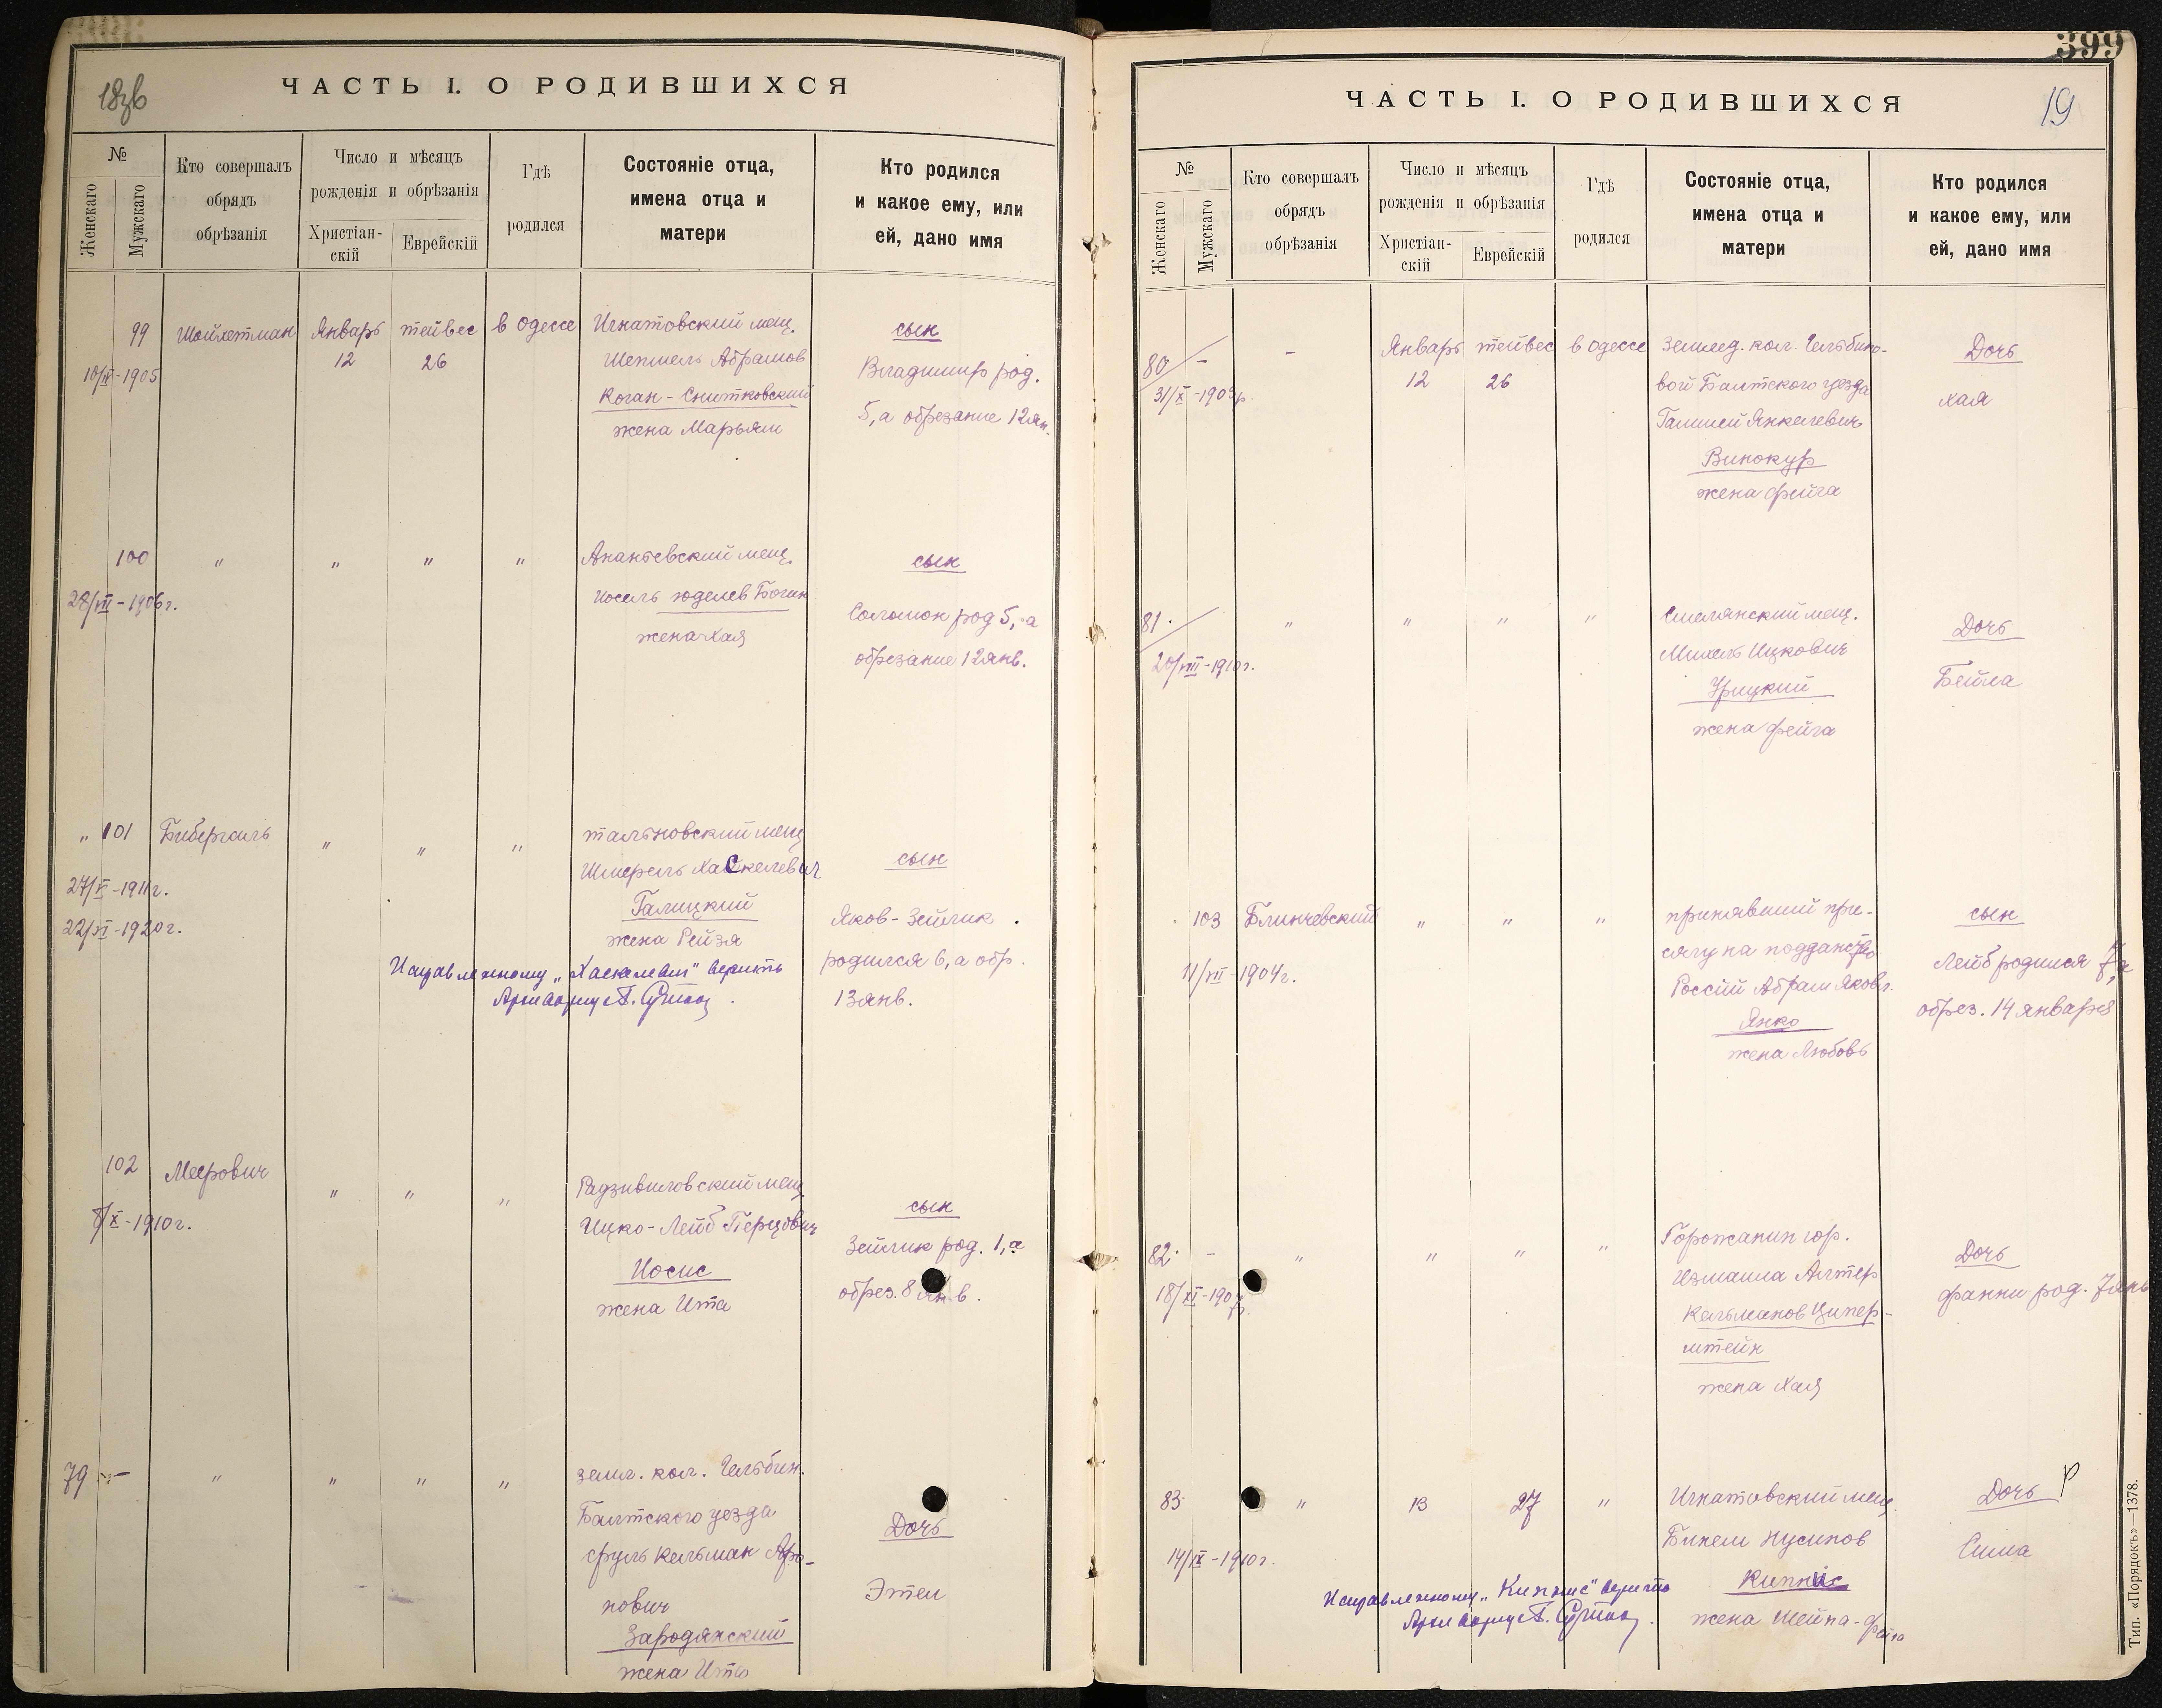 18зв
ЧАСТЬ I. О РОДИВШИХСЯ
№
Женскаго
Мужскаго
Кто совершалъ
обрядъ
обрѣзанія
Число и мѣсяцъ
рожденія и обрѣзанія
Христіан-
скій
Еврейскій
Гдѣ
родился
Состояніе отца,
имена отца и
матери
Кто родился
и какое ему, или
ей, дано имя
99 Шойхетман Январь тейвес в Одессе Игнатовский мещ. сын
10/IX-1905 12 26 Шепшель Абрамов Владимир род.
Коган-Снитковский 5, а обрезание 12 ян.
жена Марьям
100 " " " " Ананьевский мещ. сын
28/VII-1906г. Иосель Юделев Богин Соломон род 5, а
жена Хая обрезание 12 янв.
" 101 Бибергаль " " " тальновский мещ
Шмерель Хаскелевич сын
27/V-1911г. Галицкий Яков-Зейлик
22/XI-1920г. жена Рейзя родился 6, а обр.
Исправленному „Хаскелевич" верить 13 янв.
Архивариус
102 Меерович " " " Радзивиловский мещ
8/X-1910г. Ицко-Лейб Перцович сын
Иосис Зейлик род. 1, а
жена Ита обрез. 8 янв.
79 - " " " " земл. кол. Гельбин.
Балтского уезда Дочь
Сруль Кельман Аро-
нович Этел
Зародянский
жена Ита
399
19
ЧАСТЬ I. О РОДИВШИХСЯ
№
Женскаго
Мужскаго
Кто совершалъ
обрядъ
обрѣзанія
Число и мѣсяцъ
рожденія и обрѣзанія
Христіан-
скій
Еврейскій
Гдѣ
родился
Состояніе отца,
имена отца и
матери
Кто родился
и какое ему, или
ей, дано имя
80 - - Январь тейвес в Одессе землед. кол. Гельбино- Дочь
12 26 вой Балтского уезда Хая
Янкелевич
Винокур
жена Фейга
81 " " " " Смелянский мещ. Дочь
20/VIII-1910г. Михель Ицкович Бейла
Урицкий
жена Фейга
103 Блинчевский " " " принявший при- сын
сягу на подданство Лейб родился 7, а
11/VII-1904г. России Абрам Яковл. обрез. 14 января
Янко
жена Любовь
82 - " " " " Горожанин гор. Дочь
Измаила Алтер Фанни род. 7 янв
18/XI-1907г. Кельманов Ципер-
штейн
жена Хая
83 " 13 27 " Игнатовский мещ. Дочь
14/IX-1910г. Нусинов Сима
Исправленному „Кипнис" верить Кипнис
Архивариус жена Шейна-
Тип. «Порядокъ»—1378.